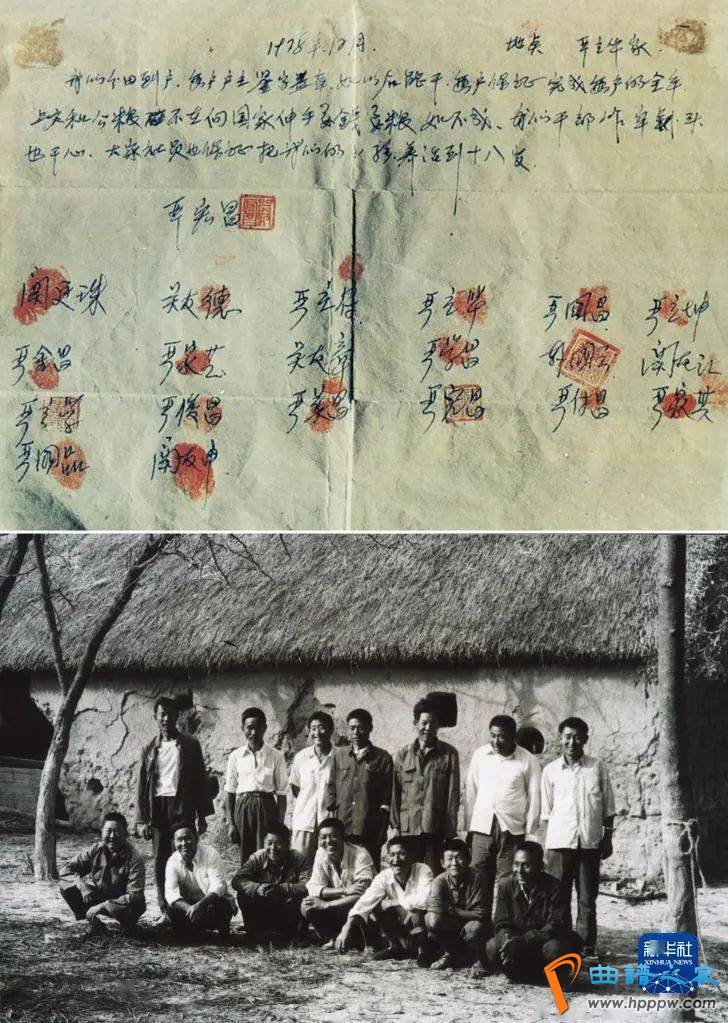 1978年12月. 地点 严立华家
我们分田到户,每户户主签字盖章,如以后能干,每户保证完成每户的全年
上交和公粮 不在向国家伸手要钱要粮 如不成,我们干部作牢刹头
也干心,大家社员也保证把我们的小孩养活到十八岁.
严宏昌
关廷珠 关友德 严立符 严立华 严国昌 严立坤
严金昌 严家芝 关友章 严学昌 韩国云 关友江
严立学 严俊昌 严美昌 严宏昌 严付昌 严家其
严国品 关友申
新华社
XINHUA NEWS
曲谱之家
www.hpppw.com